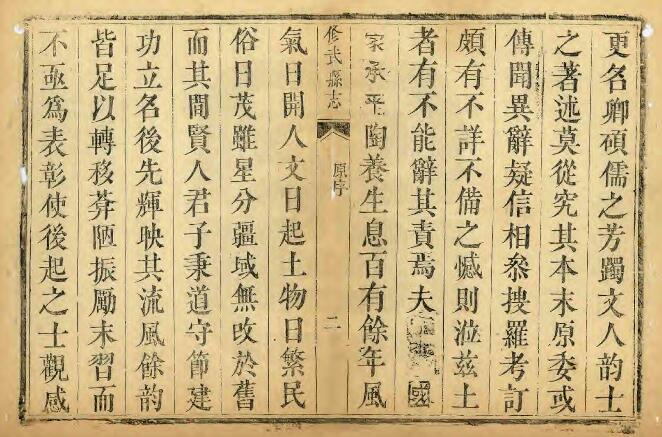 更名卿碩儒之芳躅文人韵士
之著述莫從究其本末原委或
傳聞異辭疑信相叅捜羅考訂
頗有不詳不備之憾則涖兹土
者有不能辭其責焉夫國
家承平陶養生息百有餘年風
修武縣志
原序
二
氣日開人文日起土物日繁民
俗日茂雖星分疆域無改於舊
而其間賢人君子秉道守節建
功立名後先輝映其流風餘韵
皆足以轉移葊陋振勵末習而
不亟爲表彰使後起之士觀感